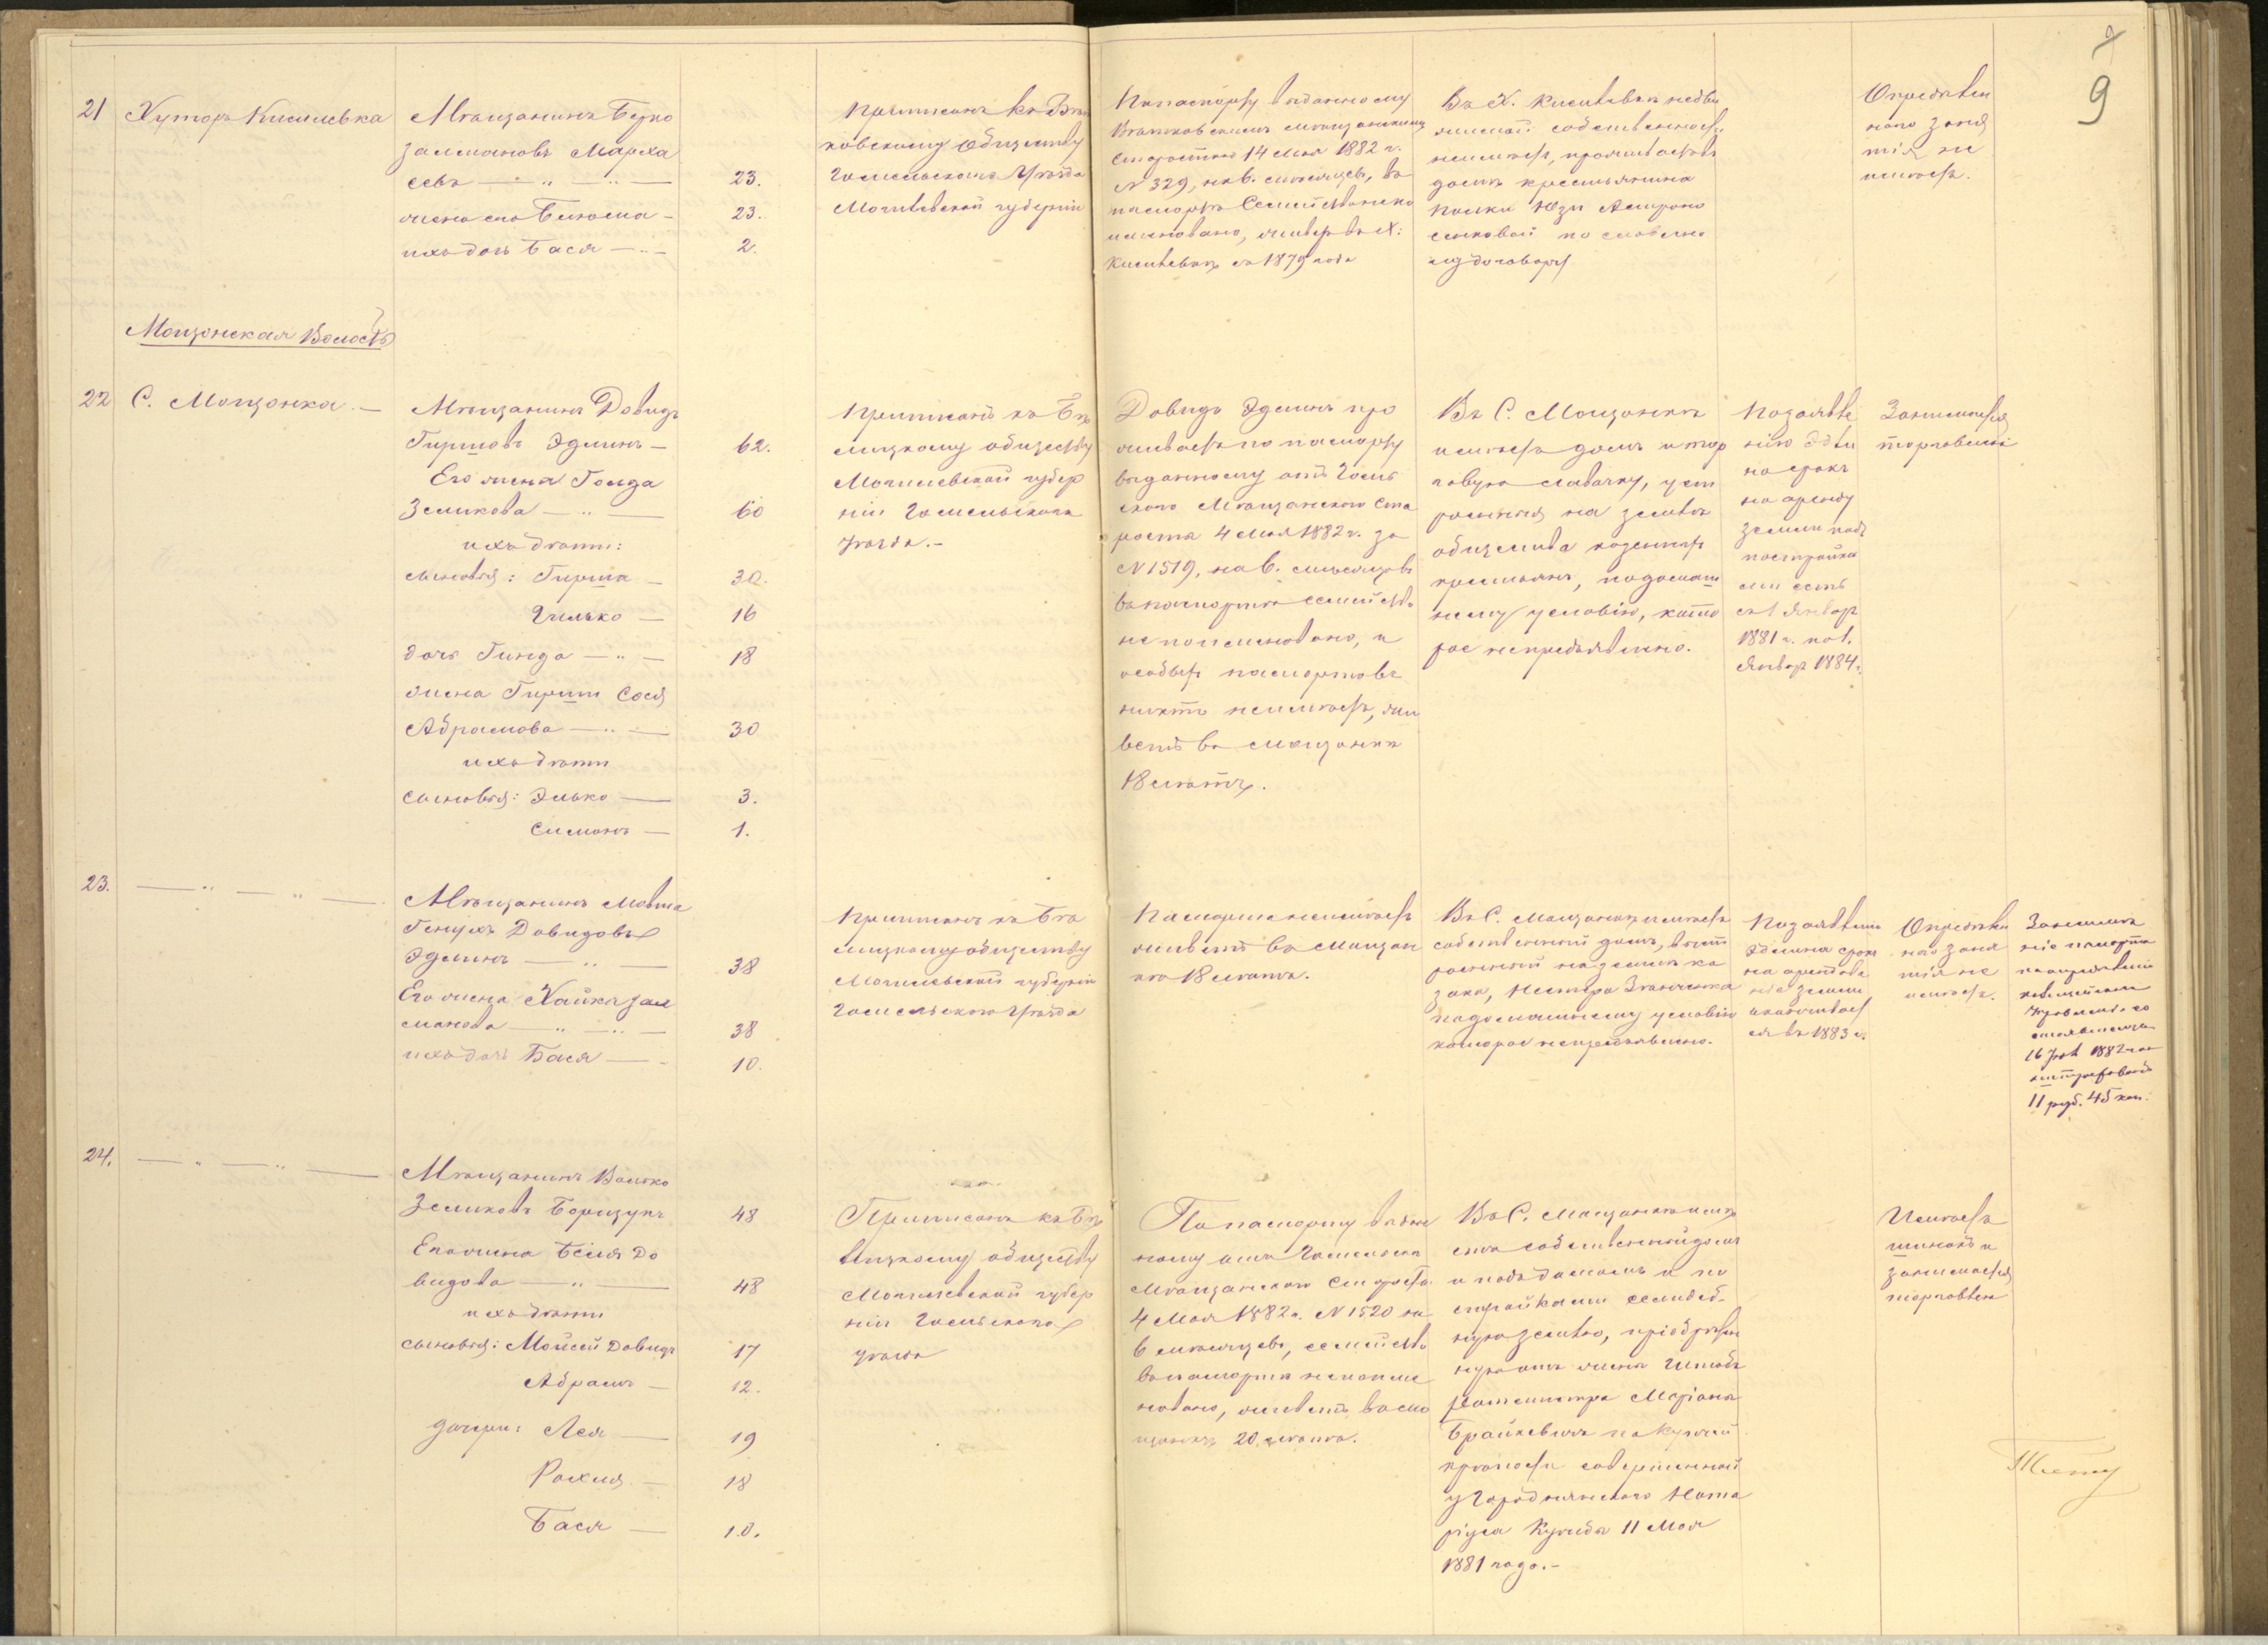 9
21 Хуторъ Кисилевка
Мѣщанинъ Берко
Залмановъ Марха
севъ — „ — „ — 23.
жена его — 23.
ихъ дочь Бася — „ — 2.
ковскому Обществу
Гомельскаго Уѣзда
Могилевской губерніи
По паспорту выданному
мѣщанскимъ
Старостою 14 Мая 1882 г.
N 329, на 6. мѣсяцевъ, въ
паспортѣ Семейство не по
именовано, живетъ въ Х:
Кисилевкѣ съ 1879 года
Въ Х. Кисилевкѣ недви
жимой собственности
неимѣетъ, проживаетъ въ
домѣ крестьянина
по словесно
му договору
Опредѣлен
наго заня
тія не
имѣетъ.
Мощонская Волость
22 С. Мощонка —
Мѣщанинъ Довидъ
Гиршовъ Эдлинъ — 62.
Его женаГолда
Зеликова — „ — 60
ихъ дѣти:
сыновья: Гирша — 30.
Гилько — 16
дочь Гинда — „ — 18
жена Гирши Сося
Абрамова — „ — 30
ихъ дѣти
сыновья: Элько — 3.
Симонъ — 1.
Приписанъ къ Бѣ
лицкому обществу
Могилевской губер
ніи Гомельскаго
уѣзда.—
Довидъ Эдлинъ про
живаетъ по паспорту
выданному отъ Гомель
скаго Мѣщанского Ста
роста 4 Мая 1882 г. за
N 1519, на 6. мѣсяцевъ
въ паспортѣ семейство
не поименовано, и
особыхъ паспортовъ
никто неимѣетъ, жи
ветъ въ Мощонкѣ
18 лѣтъ.
Въ С. Мощонкѣ
имѣетъ домъ и тор
говую лавочку, уст
роенныя на землѣ
общества казенныхъ
крестьянъ, по домаш
нему условію, кото
рое непредъявлено.
По заявле
нію Эдли
на срокъ
на аренду
земли подъ
постройка
ми есть
съ 1 Января
1881 г. по 1.
Января 1884 г.
Занимается
торговлею
23. — „ — „ —
Мѣщанинъ Мовша
Генухъ Довидовъ
Эдлинъ — „ — 38
Его жена Хайка Зал
манова — „ — „ — 38
ихъ дочь Бася — 10.
Приписанъ къ Бѣ
лицкому обществу
Могилевской губерніи
Гомельского Уѣзда
Паспорта неимѣетъ
живетъ въ Мощон
кѣ 18 лѣтъ.
Въ С. Мощонкѣ имѣетъ
собственный домъ, выст
роенный на землѣ ка
зака, Нестора
по домашнему условію
которое непредъявлено.
По заявленію
Эдлина срокъ
на арендова
ніе земли
оканчивает
ся въ 1883 г.
Опредѣлен
наго заня
тія не
имѣетъ.
За неимѣ
ніе паспорта
16 1882 года
оштрафованъ
11 руб. 45 коп.
24. — „ — „ —
Мѣщанинъ Волько
Зеликовъ Борщукъ 48
Его жена Бейля До
видова — „ — 48
ихъ дѣти
сыновья: Мойсей Довидъ 17
Абрамъ — 12.
дочери: Лея — 19
Рохля — 18
Бася — 10.
Приписанъ къ Бѣ
лицкому обществу
Могилевской губер
ніи Гомельскаго
уѣзда
По паспорту выдан
ному отъ Гомельскаго
Мѣщанского Старосты
4 Мая 1882 г. N 1520 на
6 мѣсяцевъ, семейство
въ паспортѣ непоиме
новано, живетъ въ Мо
щонкѣ 20. лѣтъ.
Въ С. Мощонкѣ имѣ
етъ собственный домъ
и подъ домомъ и по
стройками усадеб
ную землю, пріобрѣтен
ную отъ жены Штабъ
Ротмистра Маріаны
по купчей
крѣпости совершенной
у Городнянского Нота
ріуса 11 Мая
1881 года.—
Имѣетъ
шинокъ и
занимается
торговлею